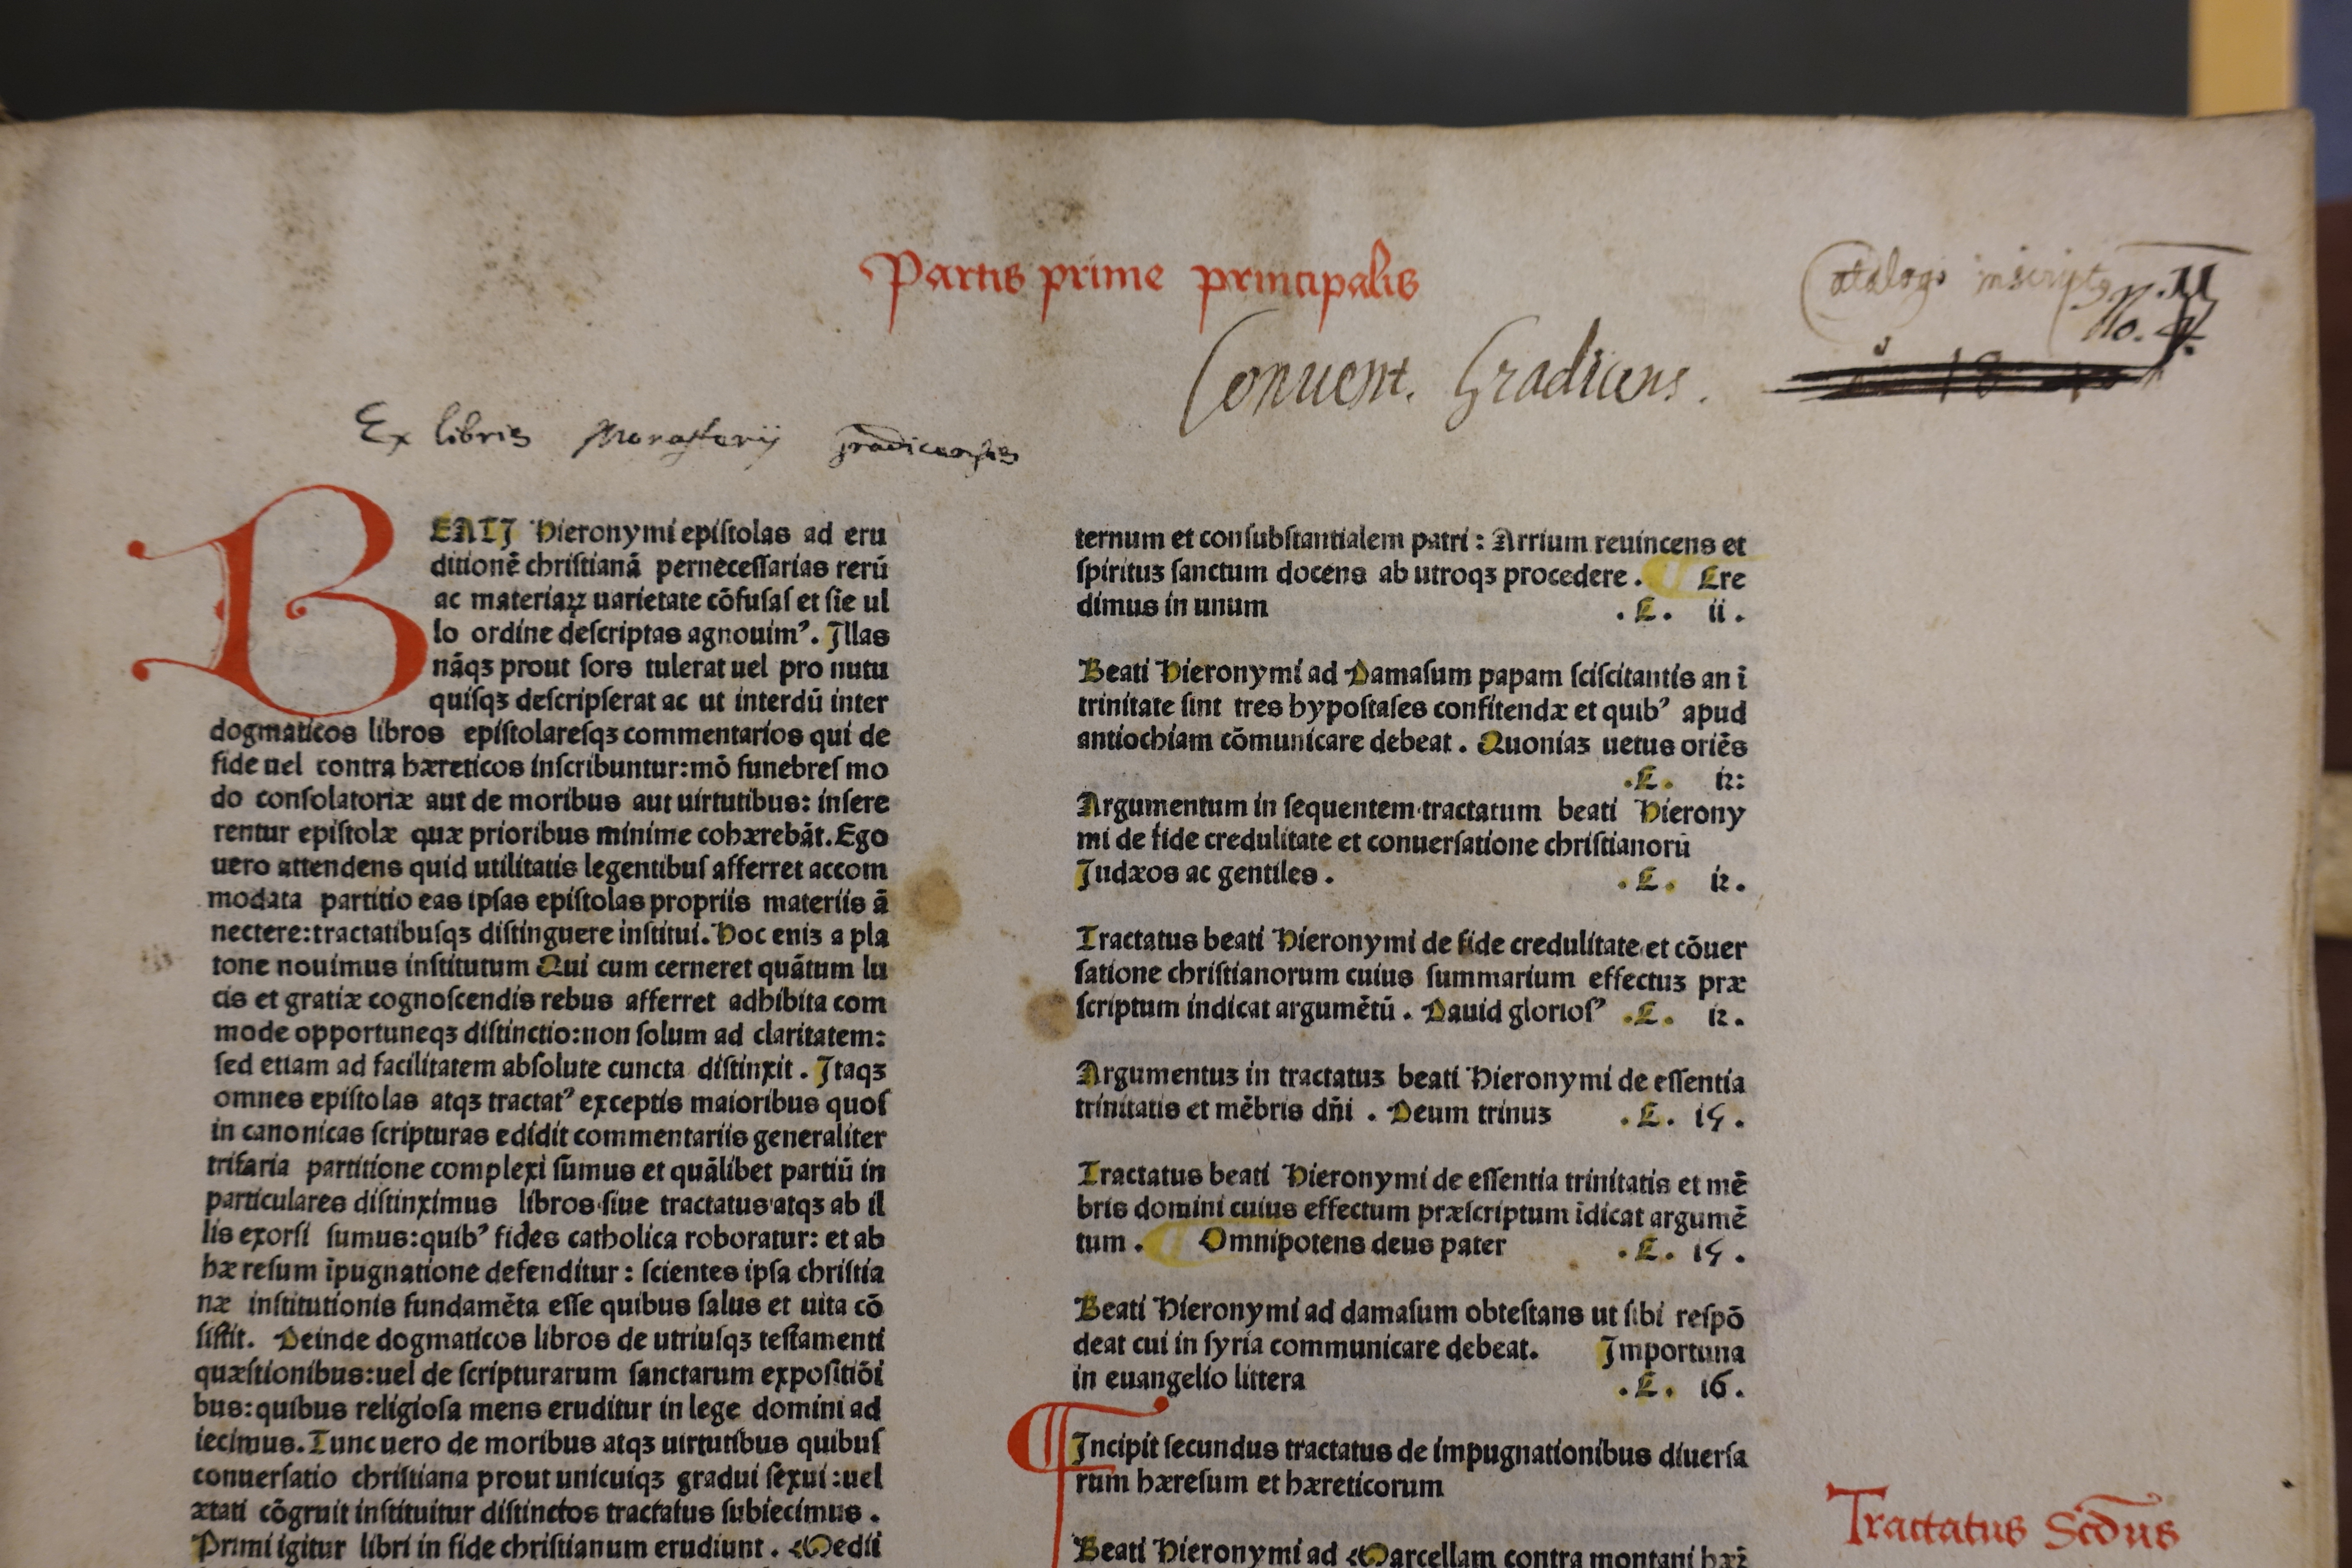 Partis prime principalis
Catalogo inscriptꝰ
N. 11
No. 4.
Conuent. Gradicens.
Ex libris Monasterij gradicensis
BEATJ Hieronymi epiſtolas ad eru
ditionē chriſtianā perneceſſarias rerū
ac materiaꝝ uarietate cōfuſaſ et ſie ul
lo ordine deſcriptas agnouimꝰ. Jllas
nāqꝫ prout ſors tulerat uel pro nutu
quiſqꝫ deſcripſerat ac ut interdū inter
dogmaticos libros epiſtolareſqꝫ commentarios qui de
fide uel contra hæreticos inſcribuntur:mō funebreſ mo
do conſolatoriæ aut de moribus aut uirtutibus: inſere
rentur epiſtolæ quæ prioribus minime cohærebāt. Ego
uero attendens quid utilitatis legentibuſ afferret accom
modata partitio eas ipſas epiſtolas propriis materiis ā
nectere:tractatibuſqꝫ diſtinguere inſtitui. Hoc eniꝫ a pla
tone nouimus inſtitutum Qui cum cerneret quātum lu
cis et gratiæ cognoſcendis rebus afferret adhibita com
mode opportuneqꝫ diſtinctio:non ſolum ad claritatem:
ſed etiam ad facilitatem abſolute cuncta diſtinxit. Jtaqꝫ
omnes epiſtolas atqꝫ tractatꝰ exceptis maioribus quoſ
in canonicas ſcripturas edidit commentariis generaliter
trifaria partitione complexi ſumus et quālibet partiū in
particulares diſtinximus libros ſiue tractatus atqꝫ ab il
lis exorſi ſumus:quibꝰ fides catholica roboratur: et ab
hæreſum īpugnatione defenditur: ſcientes ipſa chriſtia
næ inſtitutionis fundamēta eſſe quibus ſalus et uita cō
ſiſtit. Deinde dogmaticos libros de utriuſqꝫ teſtamenti
quæſtionibus:uel de ſcripturarum ſanctarum expoſitiōi
bus:quibus religioſa mens eruditur in lege domini ad
iecimus. Tunc uero de moribus atqꝫ uirtutibus quibuſ
conuerſatio chriſtiana prout unicuiqꝫ gradui ſexui:uel
ætati cōgruit inſtituitur diſtinctos tractatus ſubiecimus.
Primi igitur libri in fide chriſtianum erudiunt. Medii
ternum et conſubſtantialem patri: Arrium reuincens et
ſpirituꝫ ſanctum docens ab utroqꝫ procedere. Cre
dimus in unum .C. ii.
Beati Hieronymi ad Damaſum papam ſciſcitantis an ī
trinitate ſint tres hypoſtaſes confitendæ et quibꝰ apud
antiochiam cōmunicare debeat. Quoniaꝫ uetus oriēs
.C. 12:
Argumentum in ſequentem tractatum beati Hierony
mi de fide credulitate et conuerſatione chriſtianorū
Judæos ac gentiles. .C. 12.
Tractatus beati Hieronymi de fide credulitate et cōuer
ſatione chriſtianorum cuius ſummarium effectuꝫ præ
ſcriptum indicat argumētū. Dauid glorioſꝰ .C. 12.
Argumentuꝫ in tractatuꝫ beati Hieronymi de eſſentia
trinitatis et mēbris dñi. Deum trinuꝫ .C. 15.
Tractatus beati Hieronymi de eſſentia trinitatis et mē
bris domini cuius effectum præſcriptum īdicat argumē
tum. Omnipotens deus pater .C. 15.
Beati Hieronymi ad damaſum obteſtans ut ſibi reſpō
deat cui in ſyria communicare debeat. Importuna
in euangelio littera .C. 16.
Incipit ſecundus tractatus de impugnationibus diuerſa
rum hæreſum et hæreticorum
Beati Hieronymi ad Marcellam contra montani hæꝛ̄
Tractatus Scdus